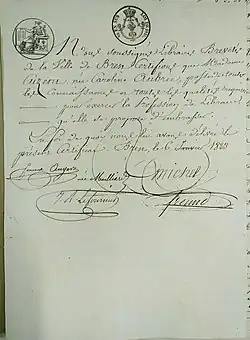 Nous soussignés Libraires Brevetés
de la Ville de Brest Certifions que Madame
Auzou, née Caroline Aubrée, possède toutes
les Connaissances et toutes les qualités requises
pour exercer la Profession de Libraire
qu'elle se propose d'embrasser.
En foi de quoi nous lui avons délivré le
présent Certificat. Brest, le 6 Janvier
Michel
née Malliard
J. B. Lefournier
freund